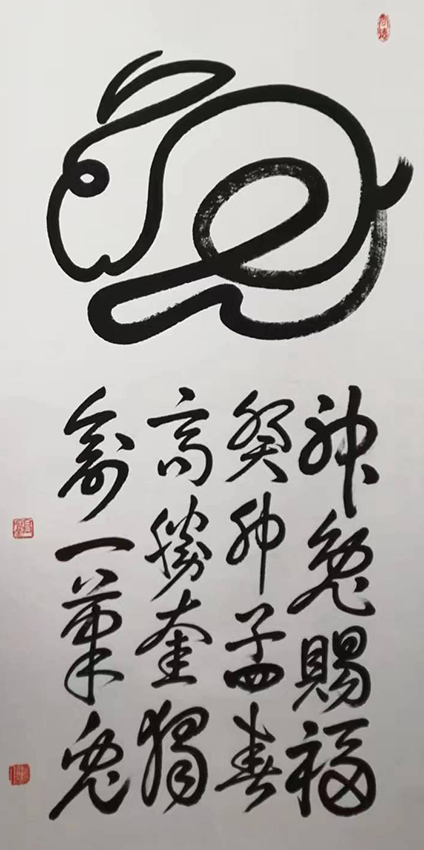 神兔賜福
癸卯孟春
高勝奎獨
創一筆兔